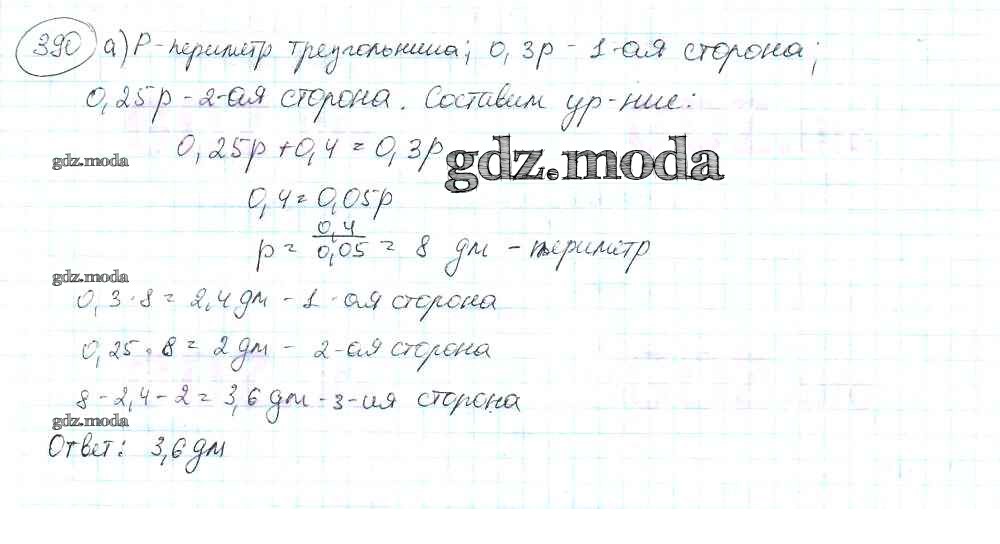 390 а) P - периметр треугольника; 0,3p - 1-ая сторона;
0,25p - 2-ая сторона. Составим ур-ние:
0,25p + 0,4 = 0,3p
gdz.moda
gdz.moda
0,4 = 0,05p
p = 0,4/0,05 = 8 дм - периметр
gdz.moda
0,3 · 8 = 2,4 дм - 1-ая сторона
0,25 · 8 = 2 дм - 2-ая сторона
8 - 2,4 - 2 = 3,6 дм - 3-ия сторона
gdz.moda
Ответ: 3,6 дм